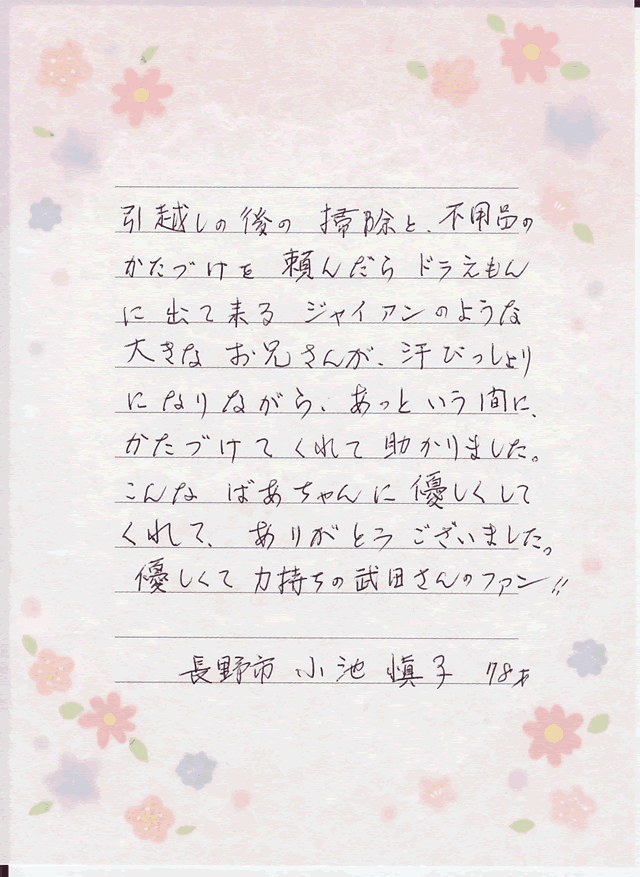 引越しの後の 掃除と、不用品の
かたづけを 頼んだら ドラえもん
に 出て来る ジャイアンのような
大きな お兄さんが、汗びっしょり
になりながら、あっという間に、
かたづけてくれて 助かりました。
こんな ばあちゃんに 優しくして
くれて、ありがとうございました。
優しくて 力持ちの 武田さんのファン!!
長野市 小池 慎子 78才